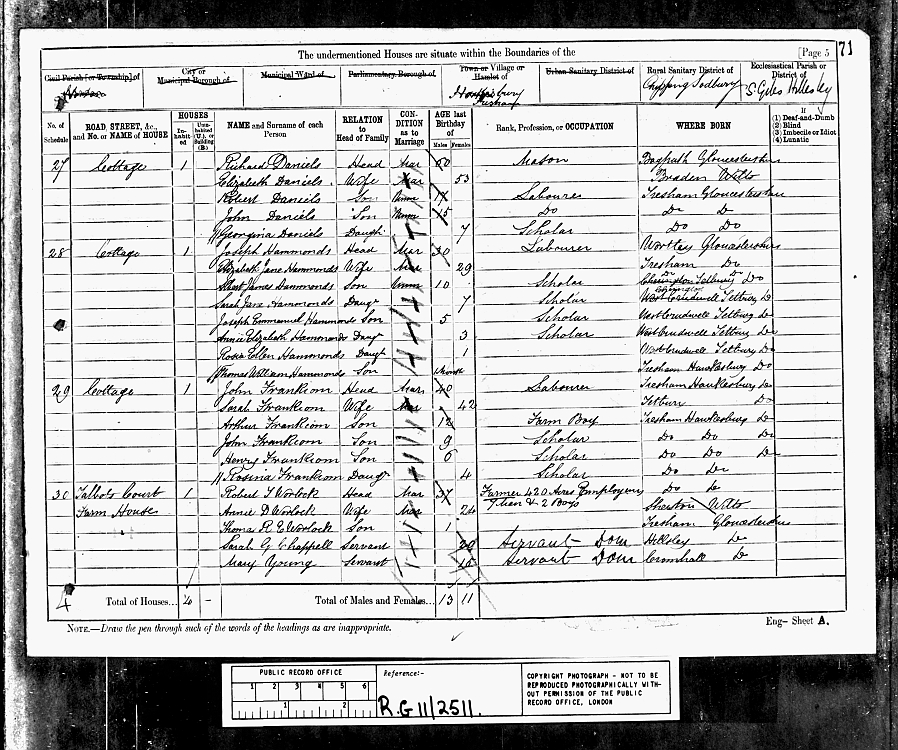 The undermentioned Houses are situate within the Boundaries of the [Page 5 71
Civil Parish [or Township] of City or Municipal Borough of Municipal Ward of Parliamentary Borough of Town or Village or Hamlet of Urban Sanitary District of Rural Sanitary District of Ecclesiastical Parish or District of
Hawkesbury Tresham Chipping Sodbury S. Giles Hillesley
No. of Schedule ROAD, STREET, &c., and No. or NAME of HOUSE HOUSES Inhabited Uninhabited (U.), or Building (B.) NAME and Surname of each Person RELATION to Head of Family CONDITION as to Marriage AGE last Birthday of Males Females Rank, Profession, or OCCUPATION WHERE BORN If (1) Deaf-and-Dumb (2) Blind (3) Imbecile or Idiot (4) Lunatic
27 Cottage 1 Richard Daniels Head Mar Mason Gloucestershire
Elizabeth Daniels Wife Mar 53 Braden Wilts
Robert Daniels Son Unm Labourer Tresham Gloucestershire
John Daniels Son Unm 15 Do Do Do
Georgina Daniels Daugh 7 Scholar Do Do
28 Cottage 1 Joseph Hammonds Head Mar 30 Labourer Wortley Gloucestershire
Elizabeth Jane Hammonds Wife Mar 29 Tresham Do
James Hammonds Son Unm 10 Scholar Tetbury Do
Sarah Jane Hammonds Daugr 7 Scholar Tetbury Do
Joseph Emmanuel Hammonds Son 5 Scholar Tetbury Do
Annie Elizabeth Hammonds Daugr 3 Scholar Tetbury Do
Rosia Ellen Hammonds Daugr 1 Tetbury Do
Thomas William Hammonds Son 1 Month Tresham Hawkesbury Do
29 Cottage 1 John Frankcom Head Mar 40 Labourer Tresham Hawkesbury Do
Sarah Frankcom Wife Mar 42 Tetbury Do
Arthur Frankcom Son 12 Farm Boy Tresham Hawkesbury Do
John Frankcom Son 9 Scholar Do Do Do
Henry Frankcom Son 6 Scholar Do Do Do
Rosina Frankcom Daugr 4 Scholar Do Do
30 Talbots Court Farm House 1 Robert T Worlock Head Mar 37 Farmer 420 Acres Employing 7 Men & 2 Boys Do Do
Annie D Worlock Wife Mar 24 Sherston Wilts
Thomas R E Worlock Son 1 Tresham Gloucestershire
Sarah G Chappell Servant 20 Servant Dom Hillsley Do
Mary Young Servant 15 Servant Dom Cromhall Do
4 Total of Houses... 4 – Total of Males and Females... 13 11
NOTE.—Draw the pen through such of the words of the headings as are inappropriate.
Eng– Sheet A.
PUBLIC RECORD OFFICE
1 2 3 4 5 6
1 2
Reference:-
R.G 11/2511.
COPYRIGHT PHOTOGRAPH - NOT TO BE REPRODUCED PHOTOGRAPHICALLY WITHOUT PERMISSION OF THE PUBLIC RECORD OFFICE, LONDON